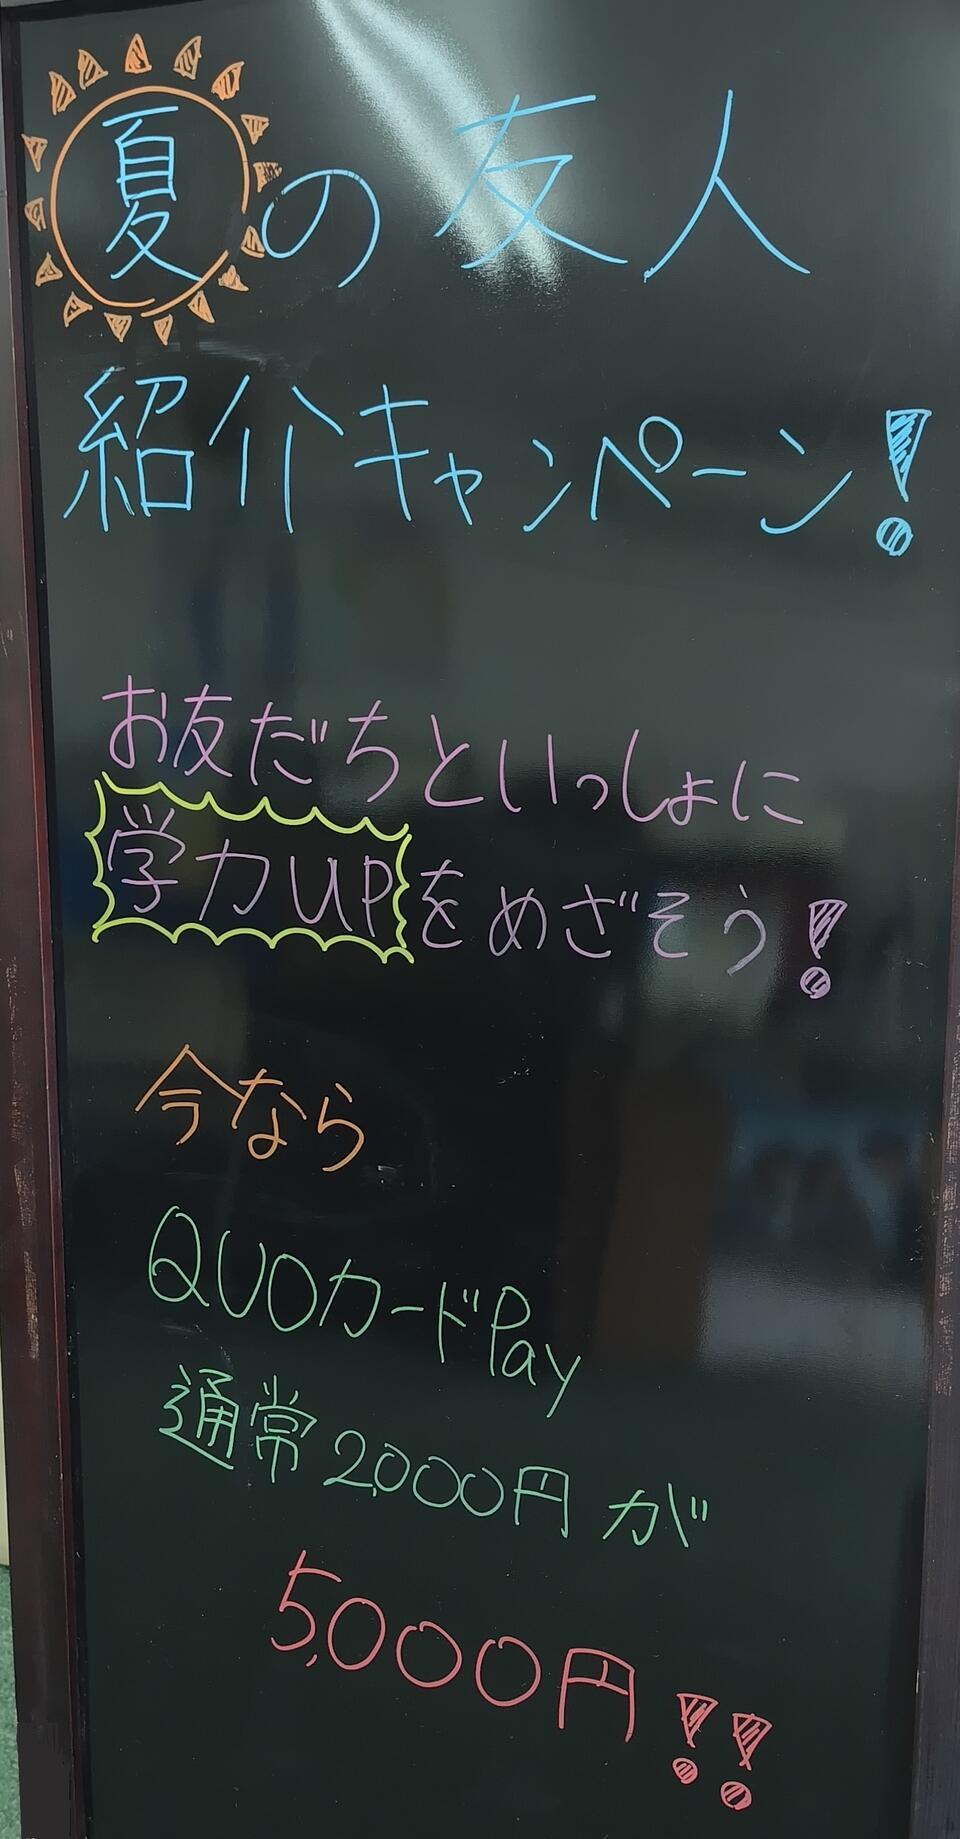 夏の友人
紹介キャンペーン!
お友だちといっしょに
学力UPをめざそう!
今なら
QUOカードPay
通常2,000円が
5,000円!!